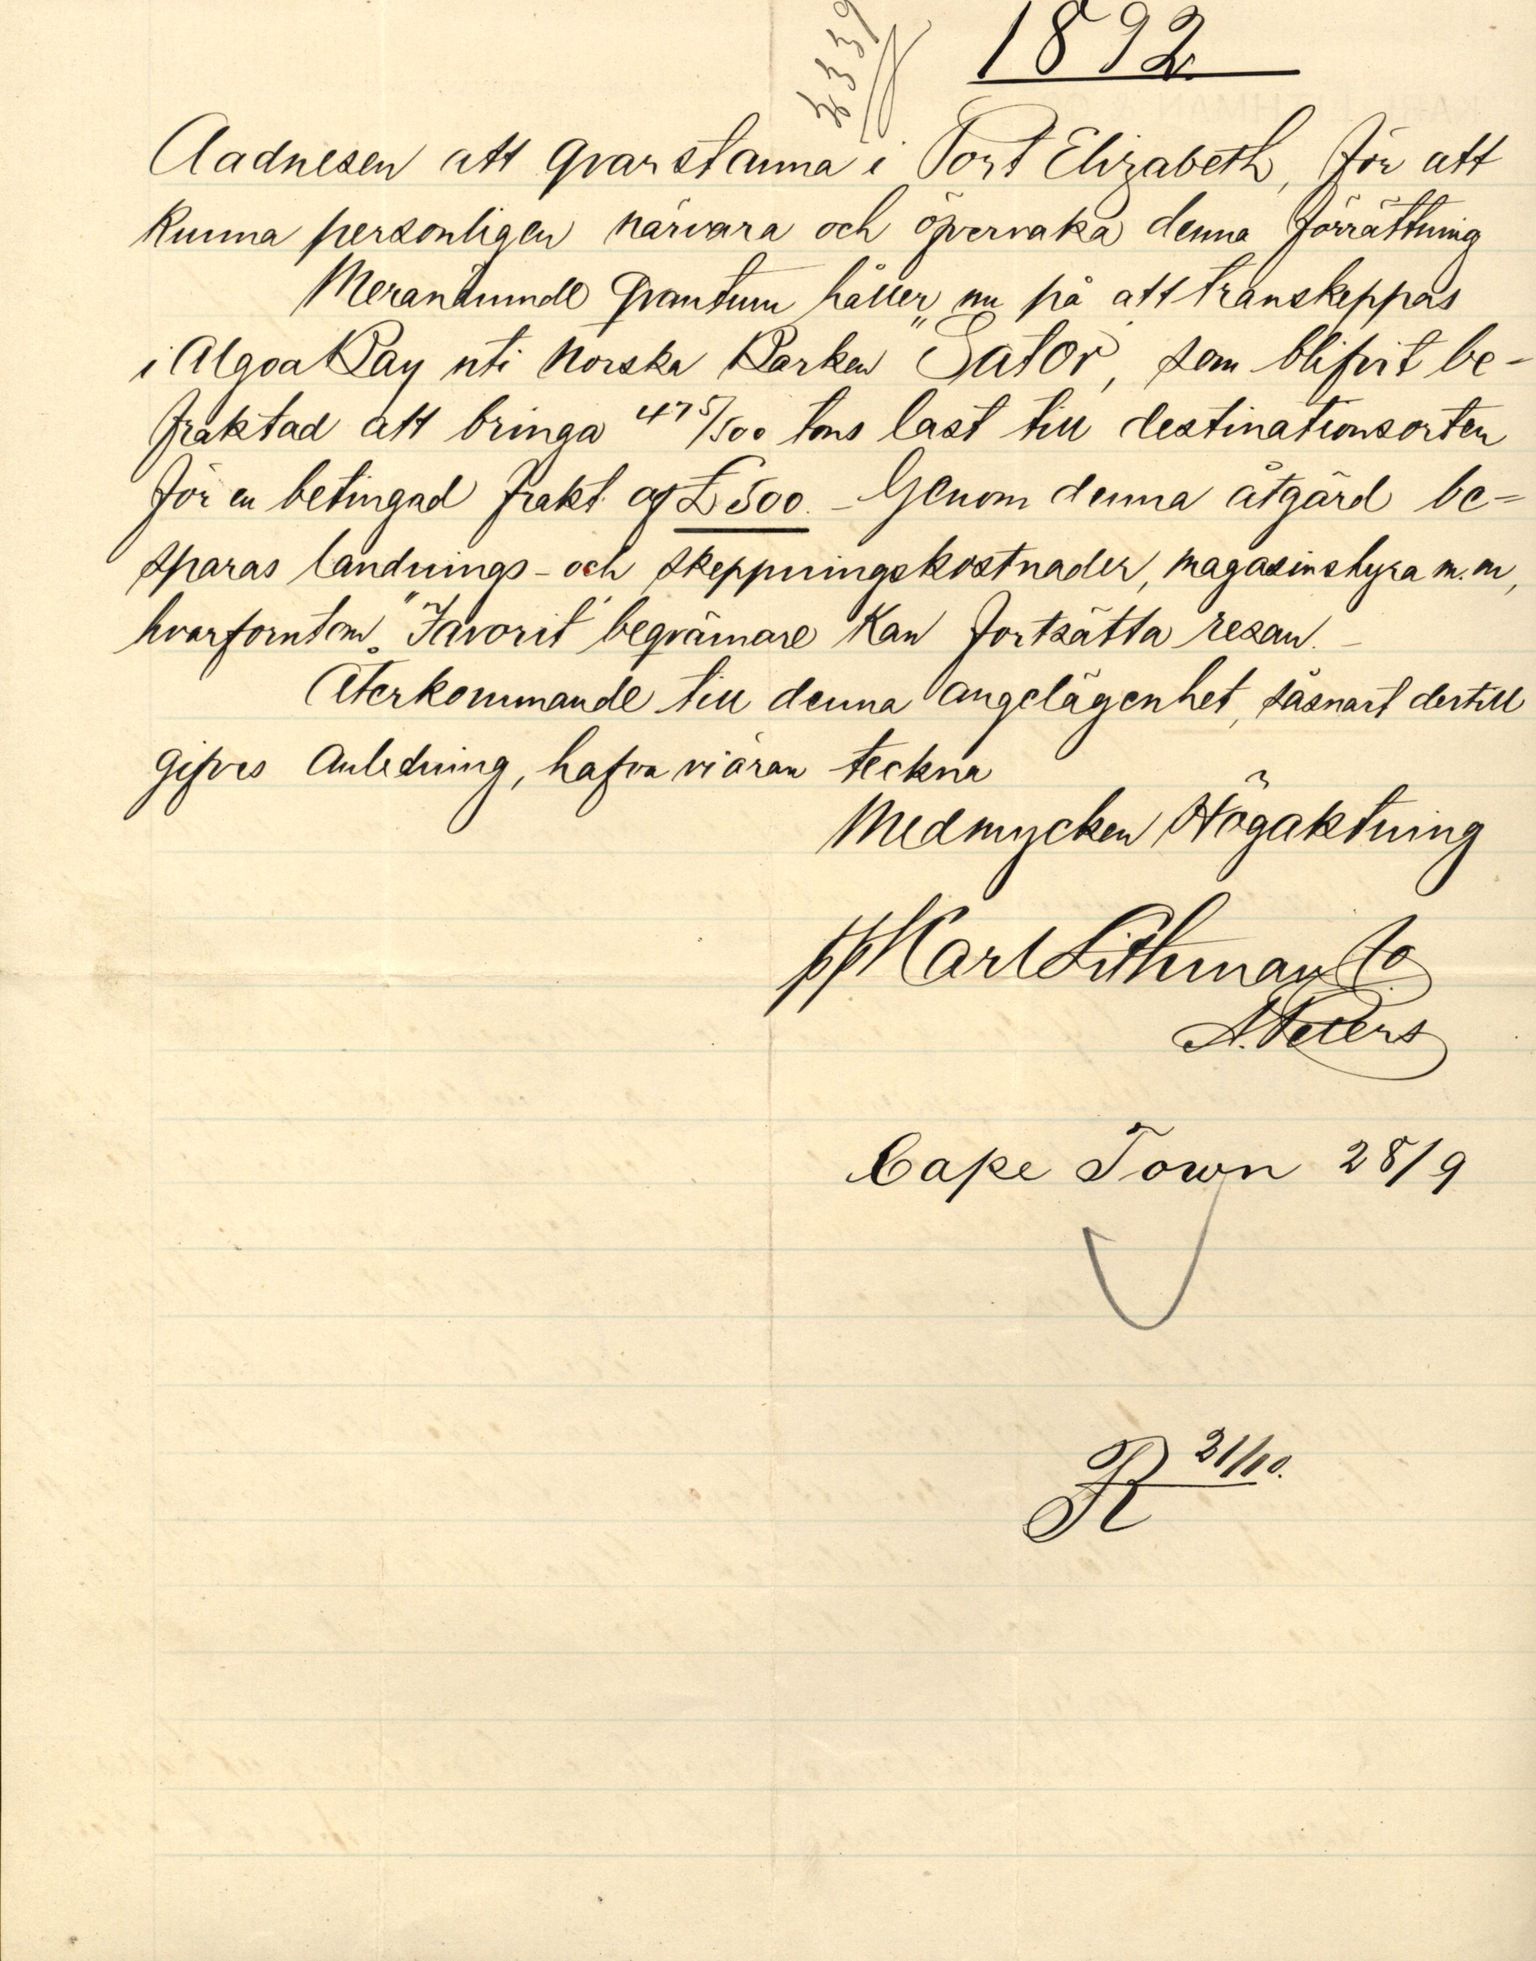 2339
1892
Aadnesen att qvarstanna i Port Elizabeth, för att
kunna personligen närvara och öfvervaka denna förrättning
Meranämnde Qvantum håller nu på att transkeppas
i Algoa Bay uti Norska Barken "Sator", som blifvit be-
fraktad att bringa 475/500 tons last till destinationsorten
för en betingad frakt af £500. – Genom denna åtgärd be-
sparas landnings- och skeppningskostnader, magasinshyra m.m,
hvarförutom "Favorit" beqvämare kan fortsätta resan. –
Återkommande till denna angelägenhet, såsnart dertill
gifves Anledning, hafva vi äran teckna
Med mycken Högaktning
pp Karl Lithman Co
A. Peters
Cape Town 28/9
R 21/10.